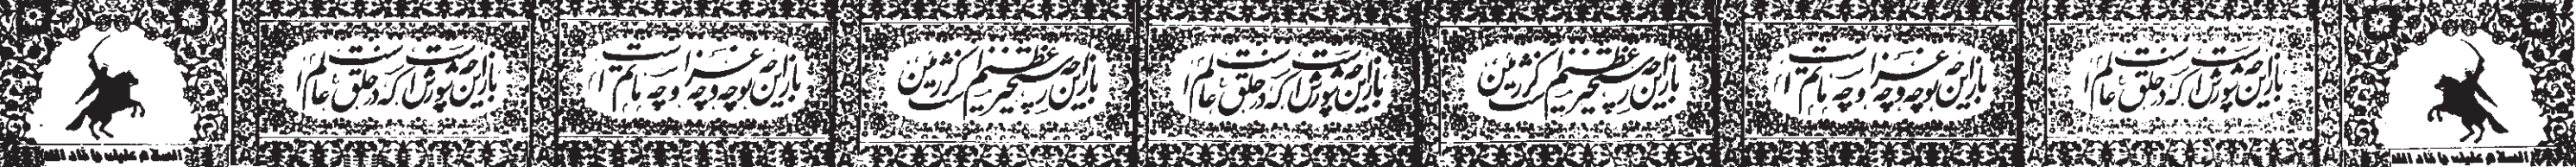 السلام علیک یا ثار الله
باز این چه شورش است که در خلق عالم است
باز این چه نوحه و چه عزا و چه ماتم است
باز این چه رستخیز عظیم است کز زمین
باز این چه شورش است که در خلق عالم است
باز این چه رستخیز عظیم است کز زمین
باز این چه نوحه و چه عزا و چه ماتم است
باز این چه شورش است که در خلق عالم است
السلام علیک یا ثار الله